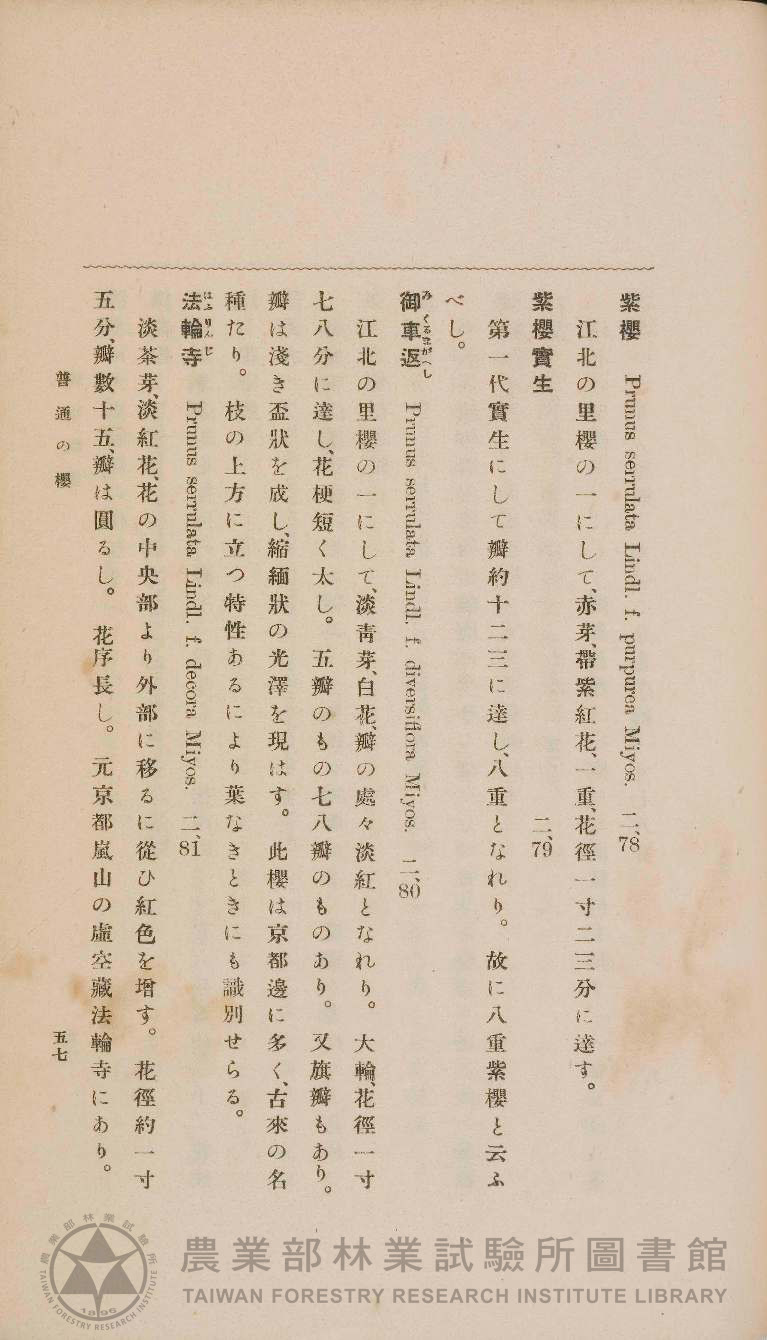 紫櫻　Prunus serrulata Lindl. f. purpurea Miyos.　二、78
江北の里櫻の一にして、赤芽、帶紫紅花、一重、花徑一寸二三分に達す。
紫櫻實生　二、79
第一代實生にして瓣約十二三に達し、八重となれり。故に八重紫櫻と云ふ
べし。
御車返　Prunus serrulata Lindl. f. diversiflora Miyos.　二、80
みくるまがへし
江北の里櫻の一にして、淡靑芽、白花、瓣の處々淡紅となれり。大輪、花徑一寸
七八分に達し、花梗短く太し。五瓣のもの七八瓣のものあり。又旗瓣もあり。
瓣は淺き盃狀を成し、縮緬狀の光澤を現はす。此櫻は京都邊に多く、古來の名
種たり。枝の上方に立つ特性あるにより葉なきときにも識別せらる。
法輪寺　Prunus serrulata Lindl. f. decora Miyos.　二、81
はふりんじ
淡茶芽、淡紅花、花の中央部より外部に移るに從ひ紅色を增す。花徑約一寸
五分、瓣數十五、瓣は圓るし。花序長し。元京都嵐山の虛空藏法輪寺にあり。
普通の櫻
五七
農業部林業試驗所圖書館
TAIWAN FORESTRY RESEARCH INSTITUTE LIBRARY
農業部林業試驗所
TAIWAN FORESTRY RESEARCH INSTITUTE
1896